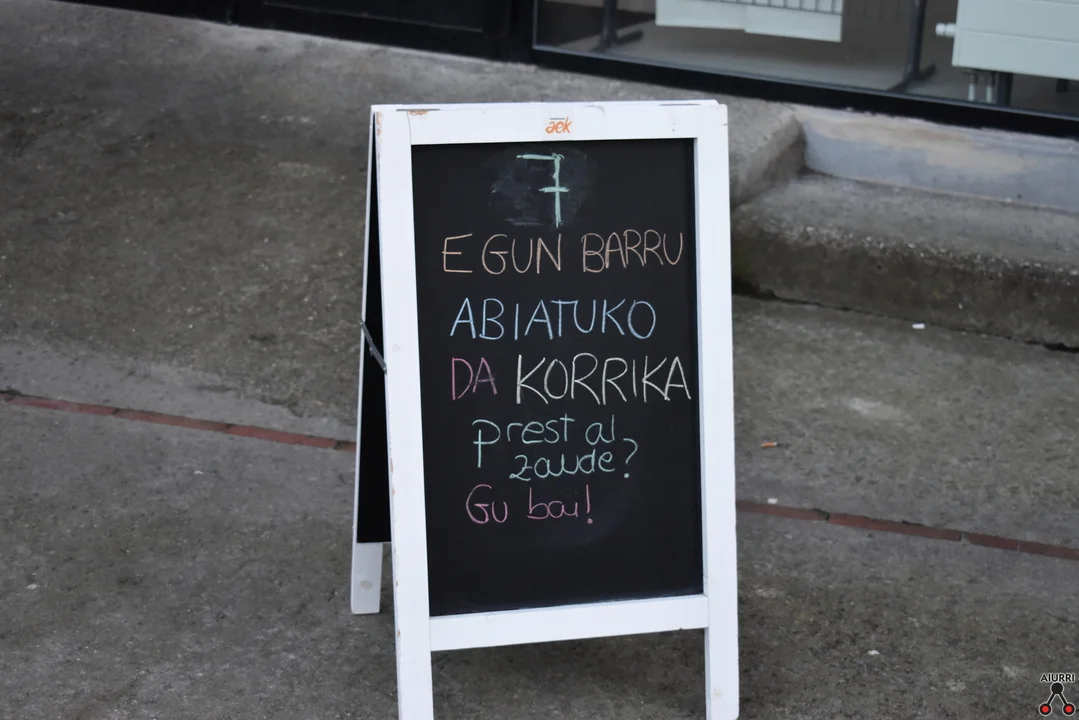 aek
7
EGUN BARRU
ABIATUKO
DA KORRIKA
prest al
zaude?
Gu bai!
AIURRI